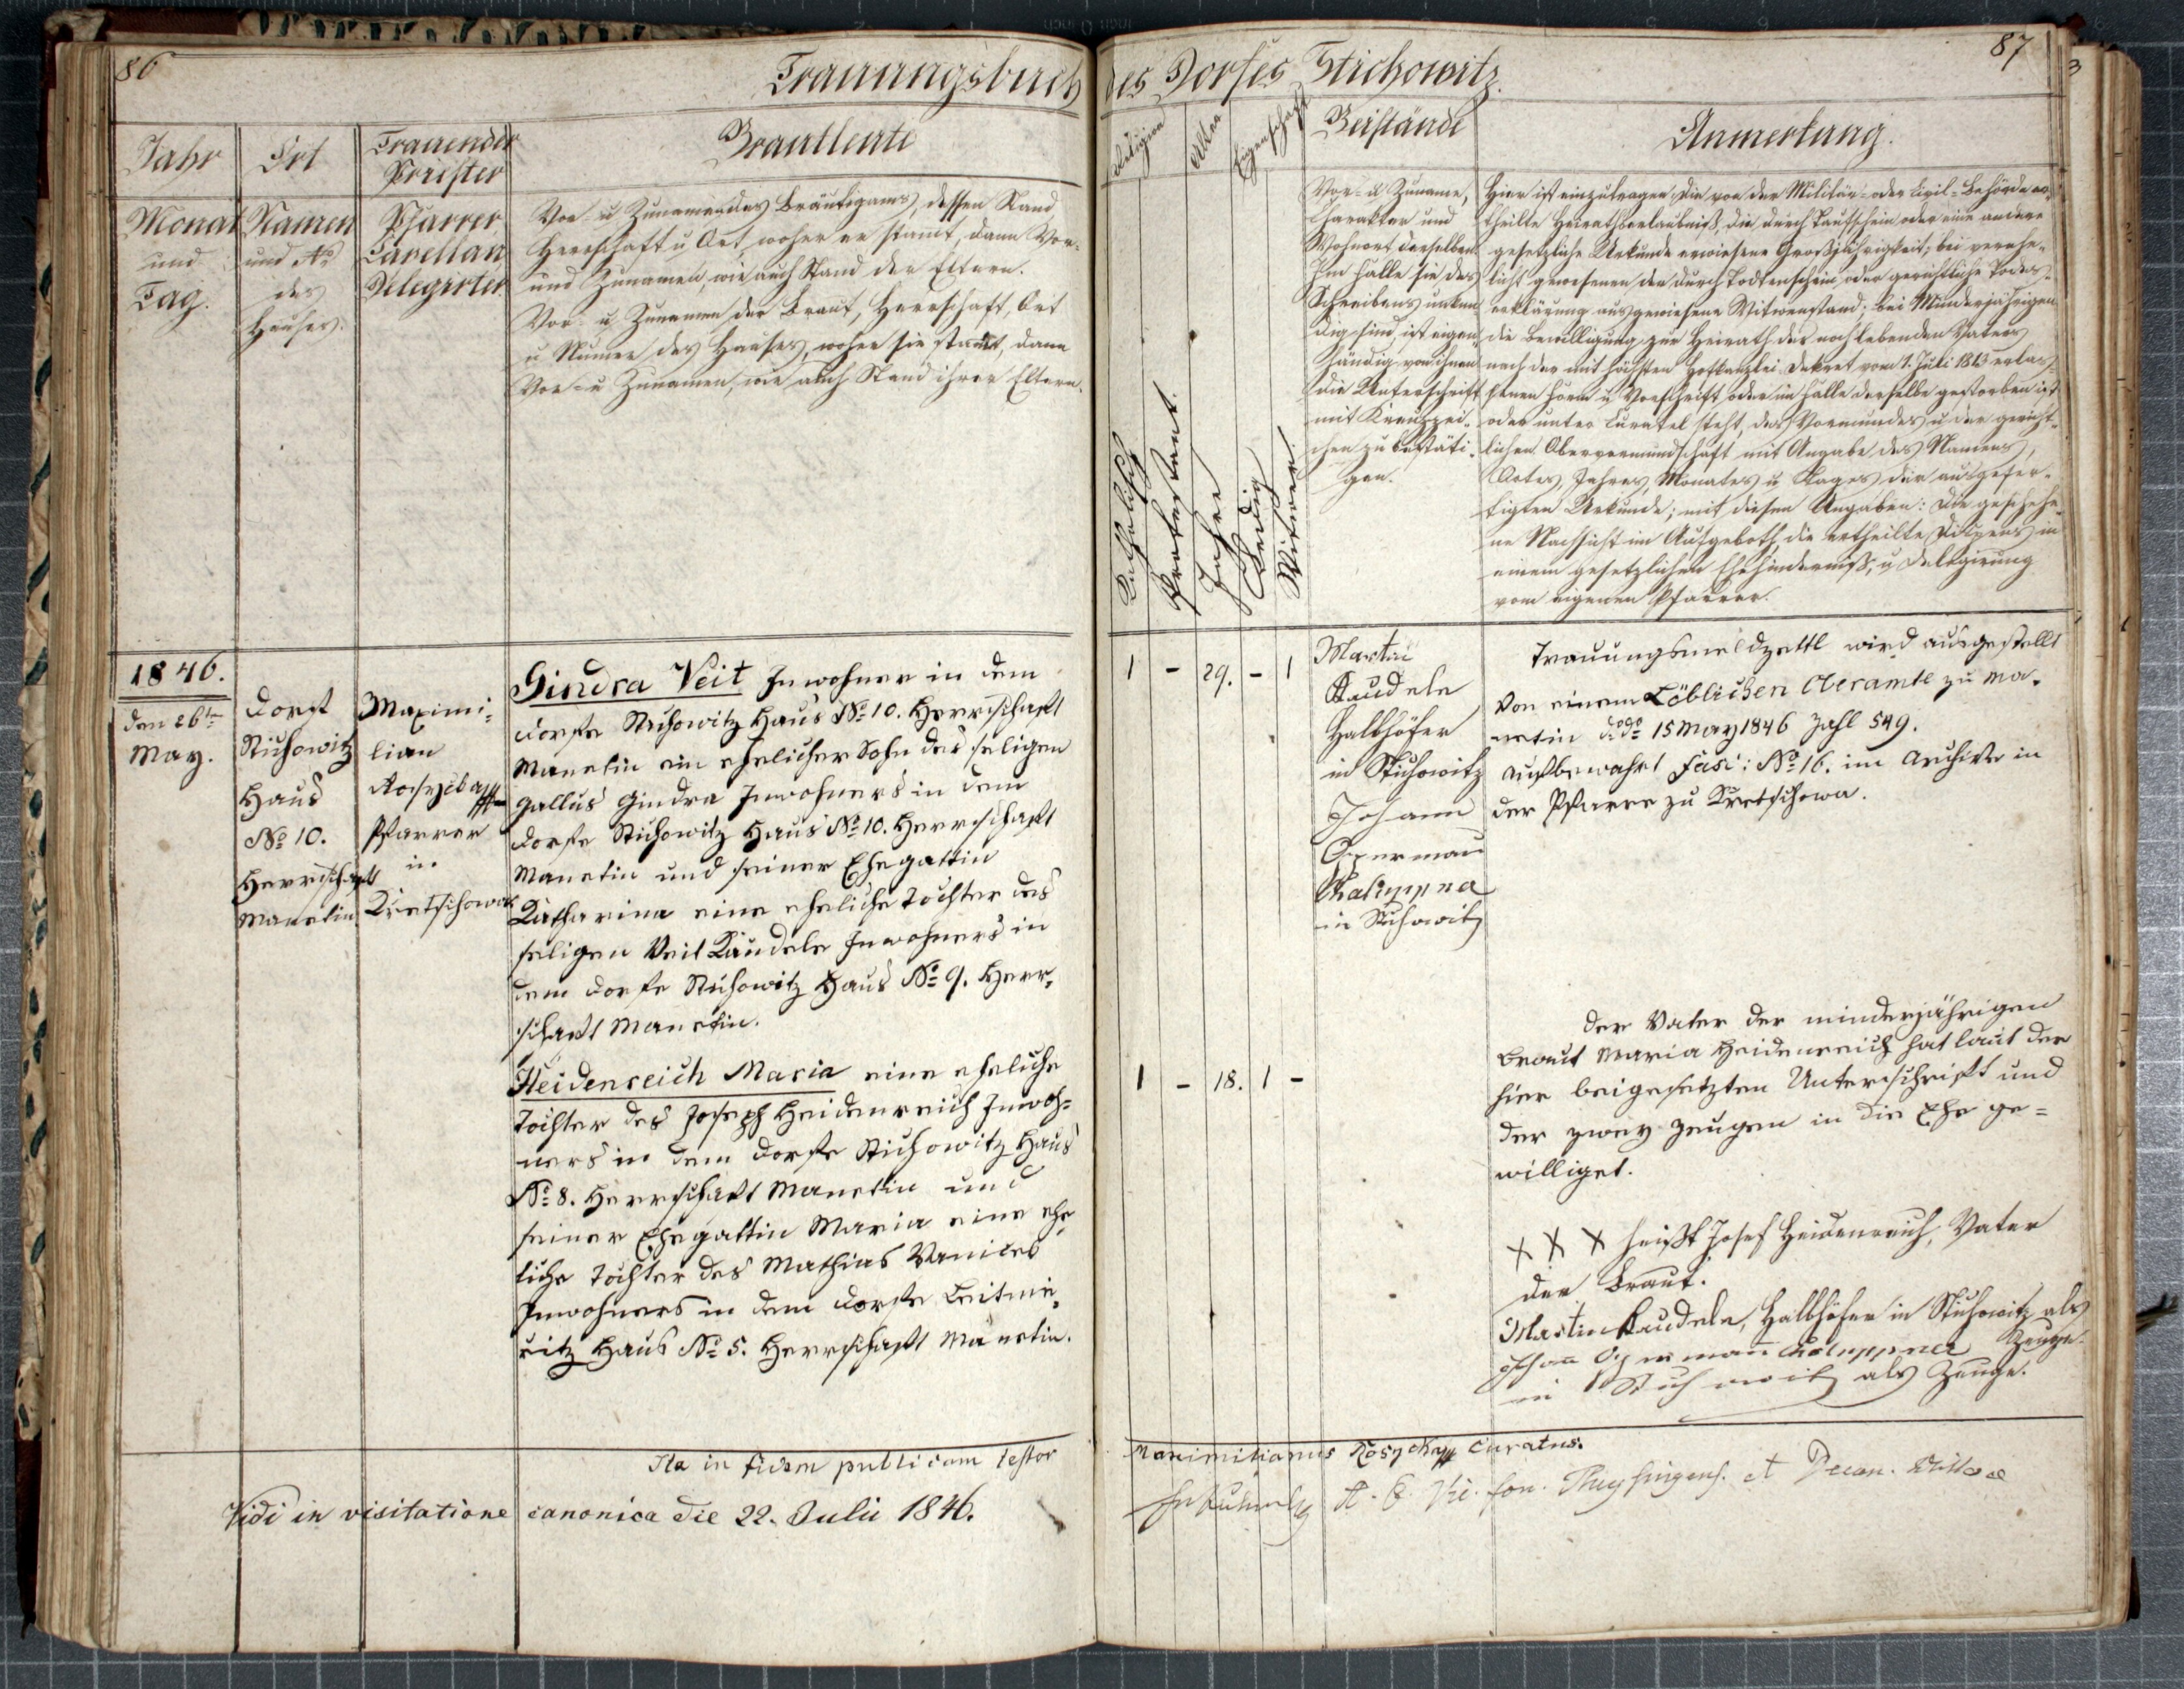 86
Trauungsbuch
Jahr
Ort
Trauender
Priester
Brautleute
Monat
und
Tag.
Namen
und No
des
Hauses.
Pfarrer,
Capellan
Delegirter
Vor- u Zunamen des Bräutigams, dessen Stand,
Herrschaft u Ort, woher er stamt, dann Vor-
und Zunamen, wie auch Stand der Eltern.
Vor- u Zunamen der Braut, Herrschaft, Ort
u Numer des Hauses, woher sie stamt, dann
Vor- u Zunamen, wie auch Stand ihrer Eltern.
1846.
den 26ten
May.
Dorf
Stichowitz
Haus
No 10.
Herrschaft
Manetin
Maximi-
lian
Pfarrer
in
Kretschowa
Gindra Veit Inwohner in dem
Dorfe Stichowitz Haus No 10. Herrschaft
Manetin ein ehelicher Sohn des seligen
Gallus Gindra Inwohners in dem
Dorfe Stichowitz Haus No 10. Herrschaft
Manetin und seiner Ehegattin
Katharina eine eheliche Tochter des
seligen Veit Kaudele Inwohners in
dem Dorfe Stichowitz Haus No 9. Herr-
schaft Manetin.
Heidenreich Maria eine eheliche
Tochter des Joseph Heidenreich Inwoh-
ners in dem Dorfe Stichowitz Haus
No 8. Herrschaft Manetin und
seiner Ehegattin Maria eine ehe-
liche Tochter des Mathias
Inwohners in dem Dorfe
Haus No 5. Herrschaft Manetin.
Ita in fidem publicam testor
Vidi in visitatione canonica die 22. Julii 1846.
des Dorfes Stichowitz.
87
Religion
Alter
Eigenschaft
Beistände
Anmerkung.
Katholisch
Protestant.
Jahre
Ledig
Witwer
Vor- u Zuname,
Charakter und
Wohnort derselben.
Im Falle sie des
Schreibens unkun-
dig sind, ist eigen-
händig von ihnen
die Unterschrift
mit Kreuzzei-
chen zu bestäti-
gen.
Hier ist einzutragen: die von der Militär- oder Civil-Behörde er-
theilte Heirathserlaubniß, die durch Taufschein oder eine andere
gesetzliche Urkunde erwiesene Großjährigkeit; bei verehe-
licht gewesenen der durch Todtenschein oder gerichtliche Todes-
erklärung ausgewiesene Witwenstand; bei Minderjährigen
die Bewilligung zur Heirath des noch lebenden Vaters
nach der mit höchsten Hofkanzlei Dekret vom 1. Juli 1813 erlas-
senen Form u Vorschrift oder im Falle derselbe gestorben ist
oder unter Curatel steht, des Vormundes u der gericht-
lichen Obervormundschaft mit Angabe des Namens,
Ortes, Jahres, Monates u Tages der ausgefer-
tigten Urkunde; mit diesen Angaben: die geschehe-
ne Nachsicht im Aufgeboth, die ertheilte Dispens in
einem gesetzlichen Ehehinderniß, u Delegirung
vom eigenen Pfarrer.
1 - 29. - 1
Martin
Kaudele
Halbhöfer
in Stichowitz
Johann
Opperman
Chaluppna
in Stichowitz
Trauungsmeldzettl wird ausgestellt
von einem Löblichen Oberamte zu Ma-
netin ddo 15 May 1846 Zahl 549.
aufbewahrt Fasc: No 16. im Archive in
der Pfarre zu Kretschowa.
1 - 18. 1 -
Der Vater der minderjährigen
Braut Maria Heidenreich hat laut der
hier beigesetzten Unterschrift und
der zwey Zeugen in die Ehe ge-
williget.
X X X heißt Josef Heidenreich, Vater
der Braut.
Martin Kaudele, Halbhöfer in Stichowitz als
Zeuge.
Johann Oppermann Chaluppner
in Stichowitz als Zeuge.
Maximilianus curatus.